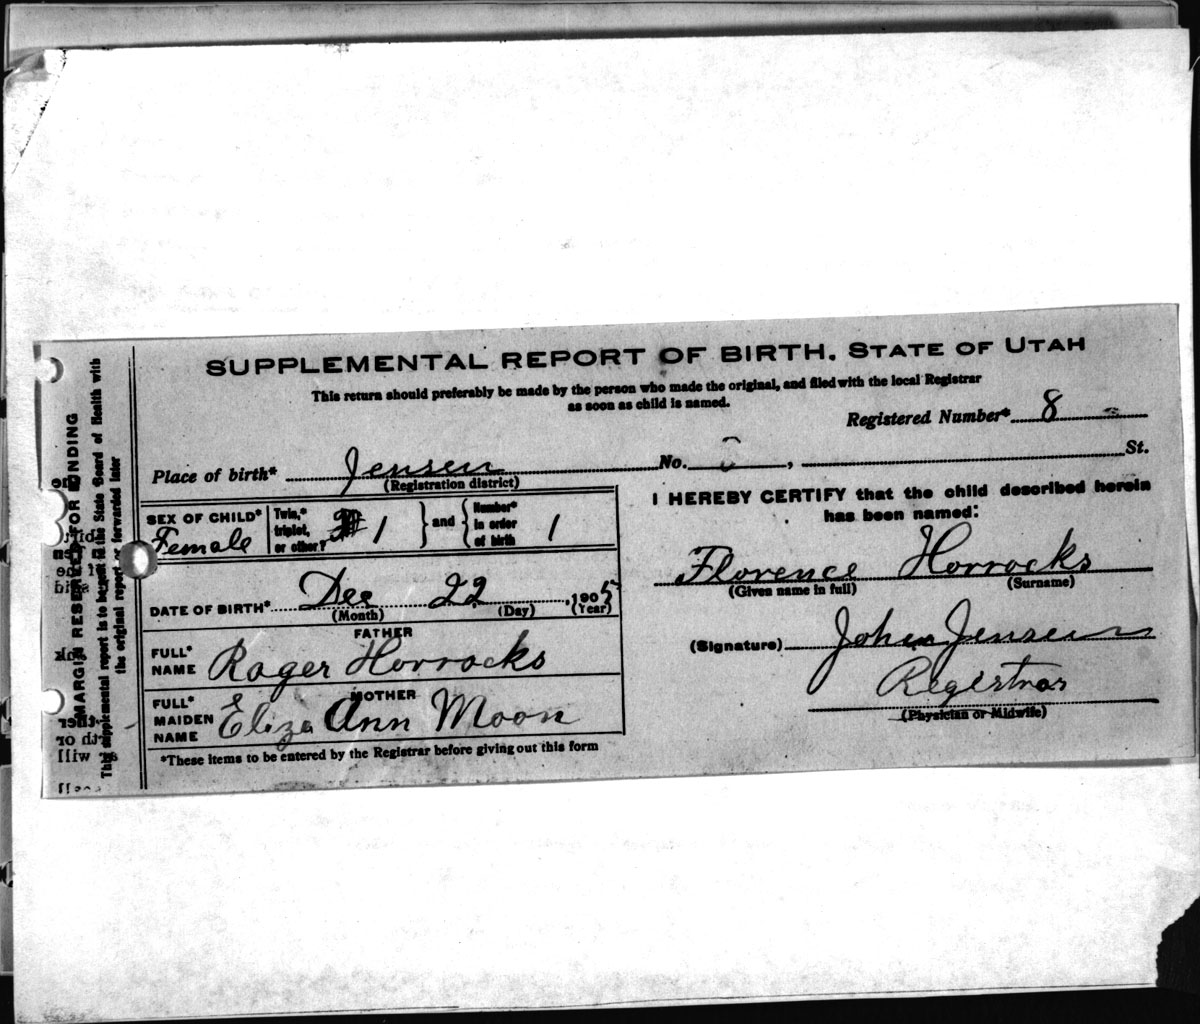 SUPPLEMENTAL REPORT OF BIRTH. STATE OF UTAH
This return should preferably be made by the person who made the original, and filed with the local Registrar
as soon as child is named.
Registered Number* 8
Place of birth* Jensen No. , St.
(Registration district)
SEX OF CHILD* Female
Twin,* triplet, or other? 1
and
Number* in order of birth 1
DATE OF BIRTH* Dec 22, 1905
(Month) (Day) (Year)
FATHER
FULL* NAME Roger Horrocks
MOTHER
FULL* MAIDEN NAME Eliza Ann Moon
*These items to be entered by the Registrar before giving out this form
I HEREBY CERTIFY that the child described herein
has been named:
Florence Horrocks
(Given name in full) (Surname)
(Signature) John Jensen
Registrar
(Physician or Midwife)
MARGIN RESERVED FOR BINDING
This supplemental report is to be sent to the State Board of Health with
the original report or forwarded later